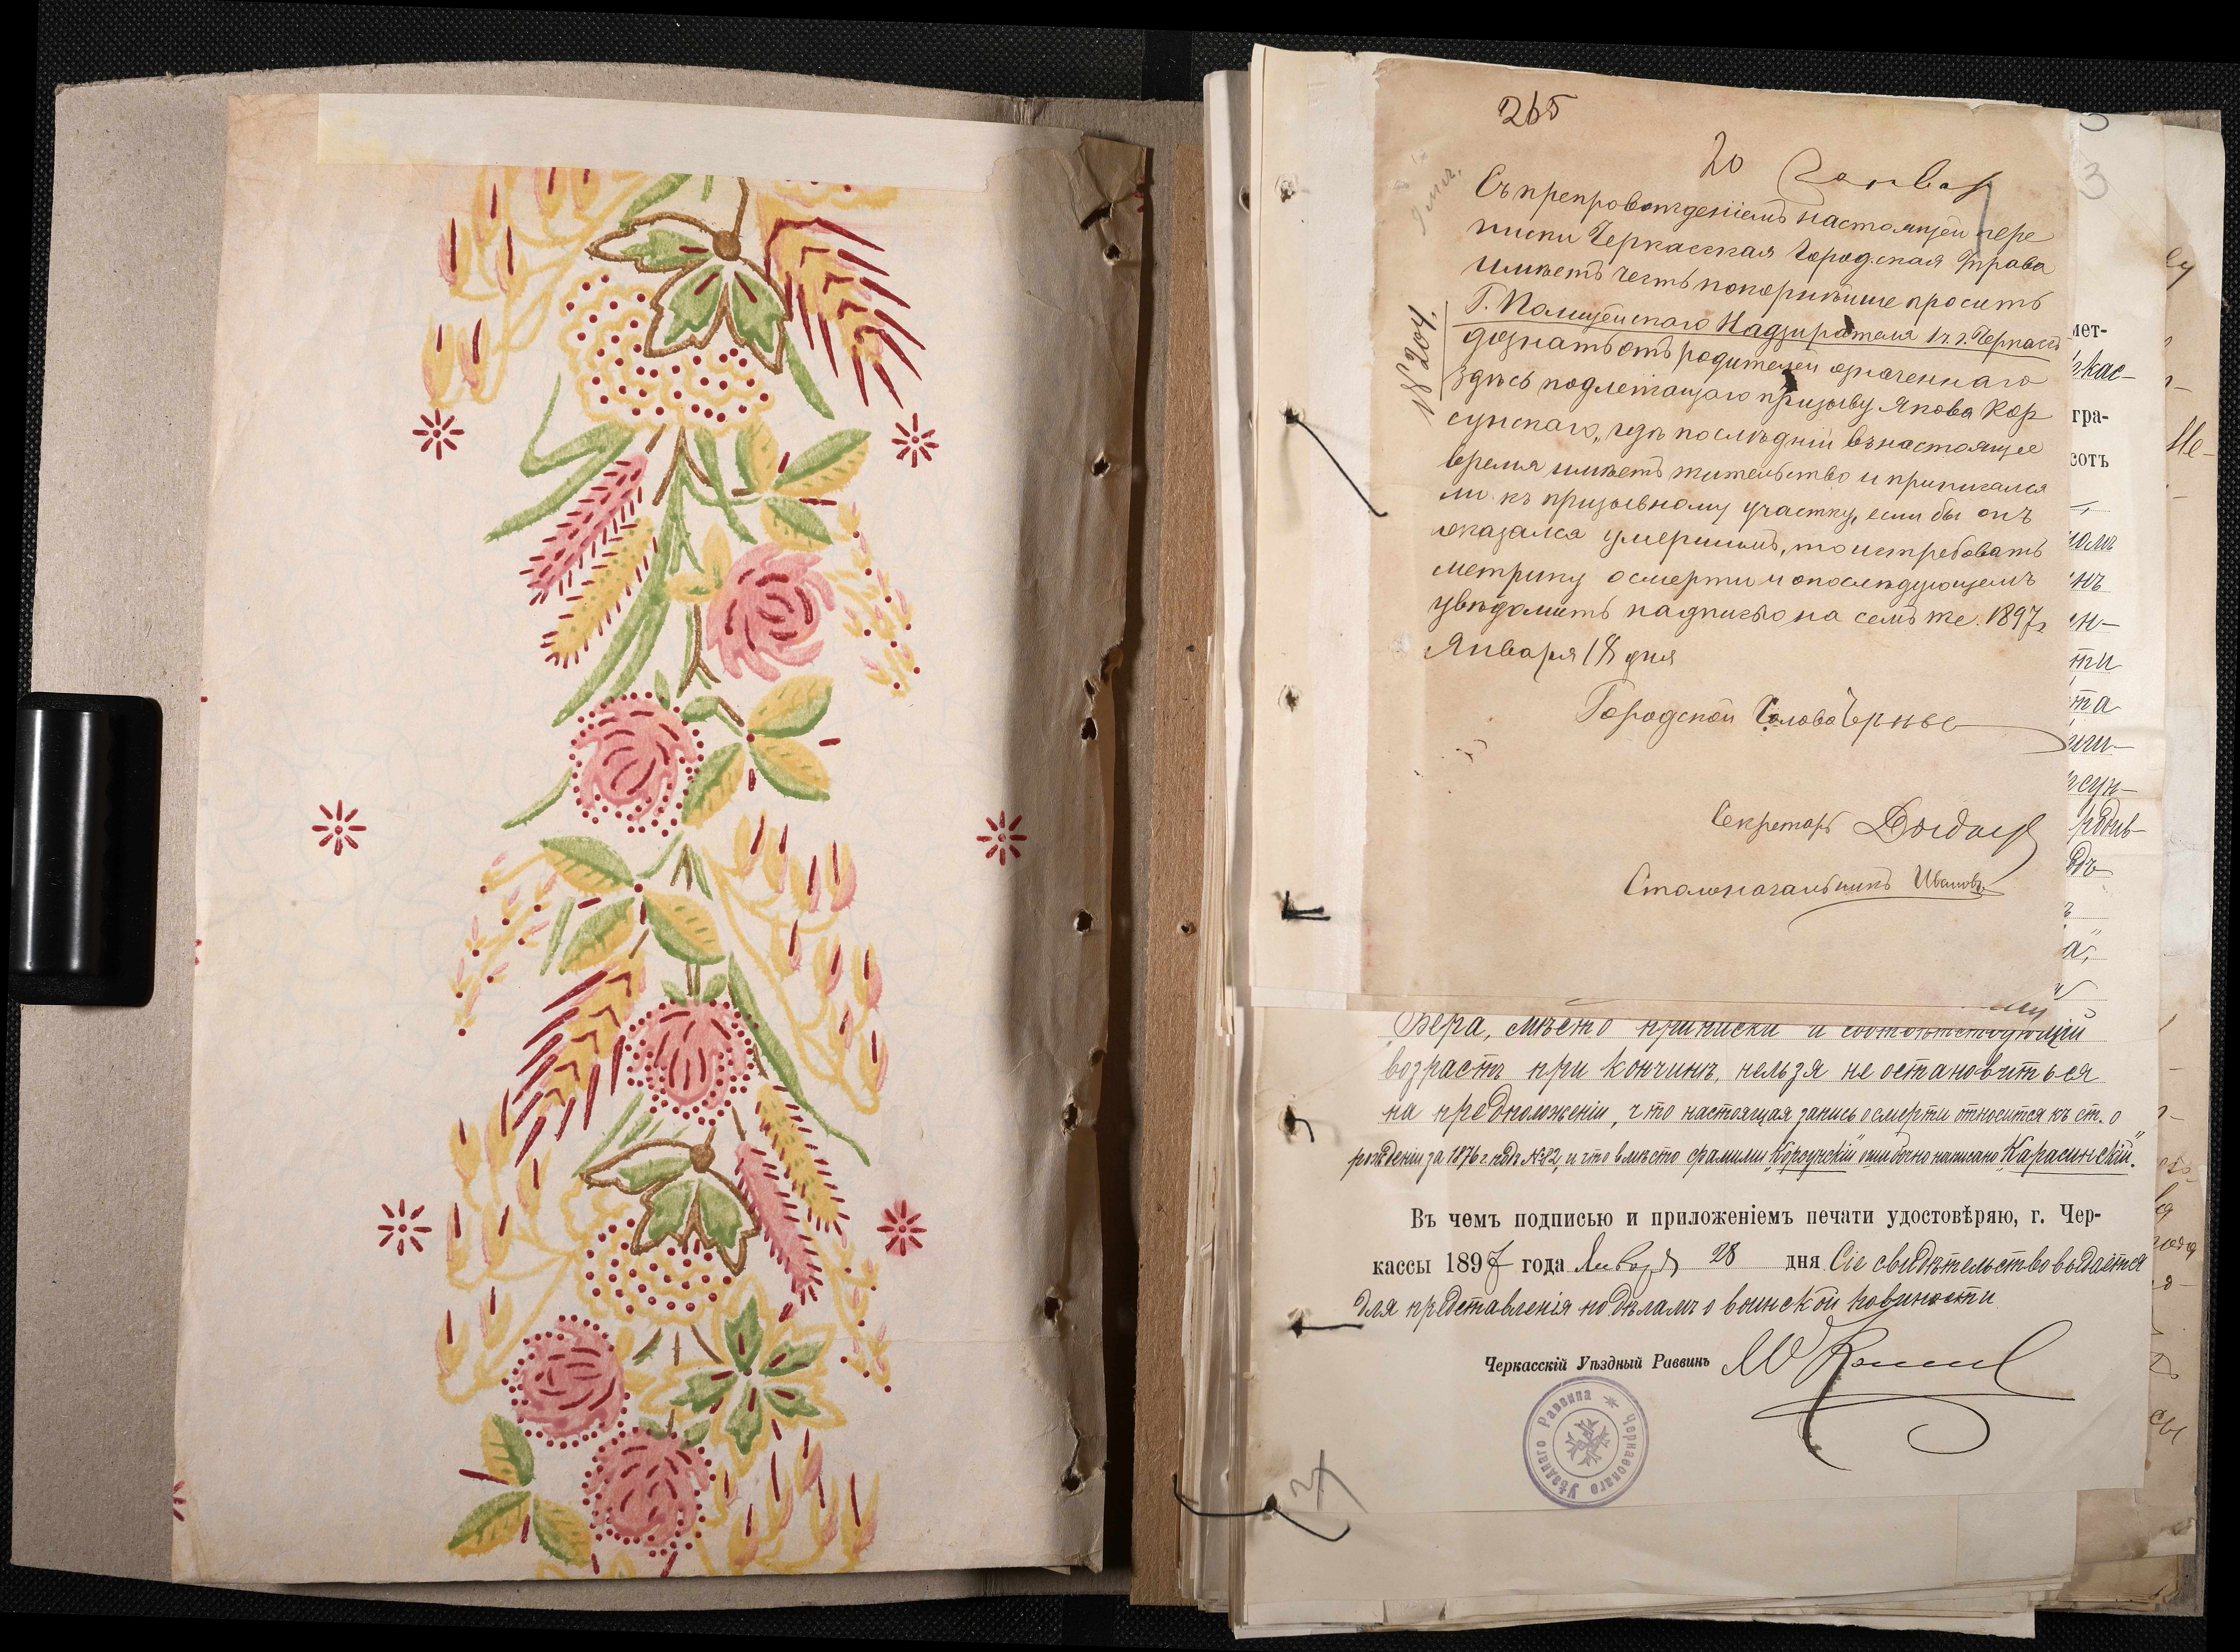 265
20 Января
Съ препровожденіемъ настоящей пере
писки Черкасская Городская Управа
имѣетъ честь покорнѣйше просить
Г. Полицейскаго Надзирателя 1 ч. г. Черкасъ
дознать отъ родителей означеннаго
здѣсь подлежащаго призыву Якова Кор
сунскаго, гдѣ послѣдній въ настоящее
время имѣетъ жительство и приписался
ли къ призывному участку, если бы онъ
оказался умершимъ, то истребовать
метрику о смерти и о послѣдующемъ
увѣдомить надписью на семъ же. 1897 г.
Января 18 дня
№ 204.
Городской Голова
Секретарь
Столоначальникъ Ивановъ
3
мет-
кас-
гра-
сотъ
Вѣра, мѣсто приписки и соотвѣтствующій
возрастъ при кончинѣ, нельзя не остановиться
на предположеніи, что настоящая запись о смерти относится къ ст. о
рожденіи за 1876 г. подъ №82, и что вмѣсто фамиліи „Корсунскій" ошибочно написано „Карасинскій".
Въ чемъ подписью и приложеніемъ печати удостовѣряю, г. Чер-
кассы 1897 года Января 28 дня Сіе свидѣтельство выдается
для представленія по дѣламъ о воинской повинности
Черкасскій Уѣздный Раввинъ
Черкасскаго Уѣзднаго Раввина